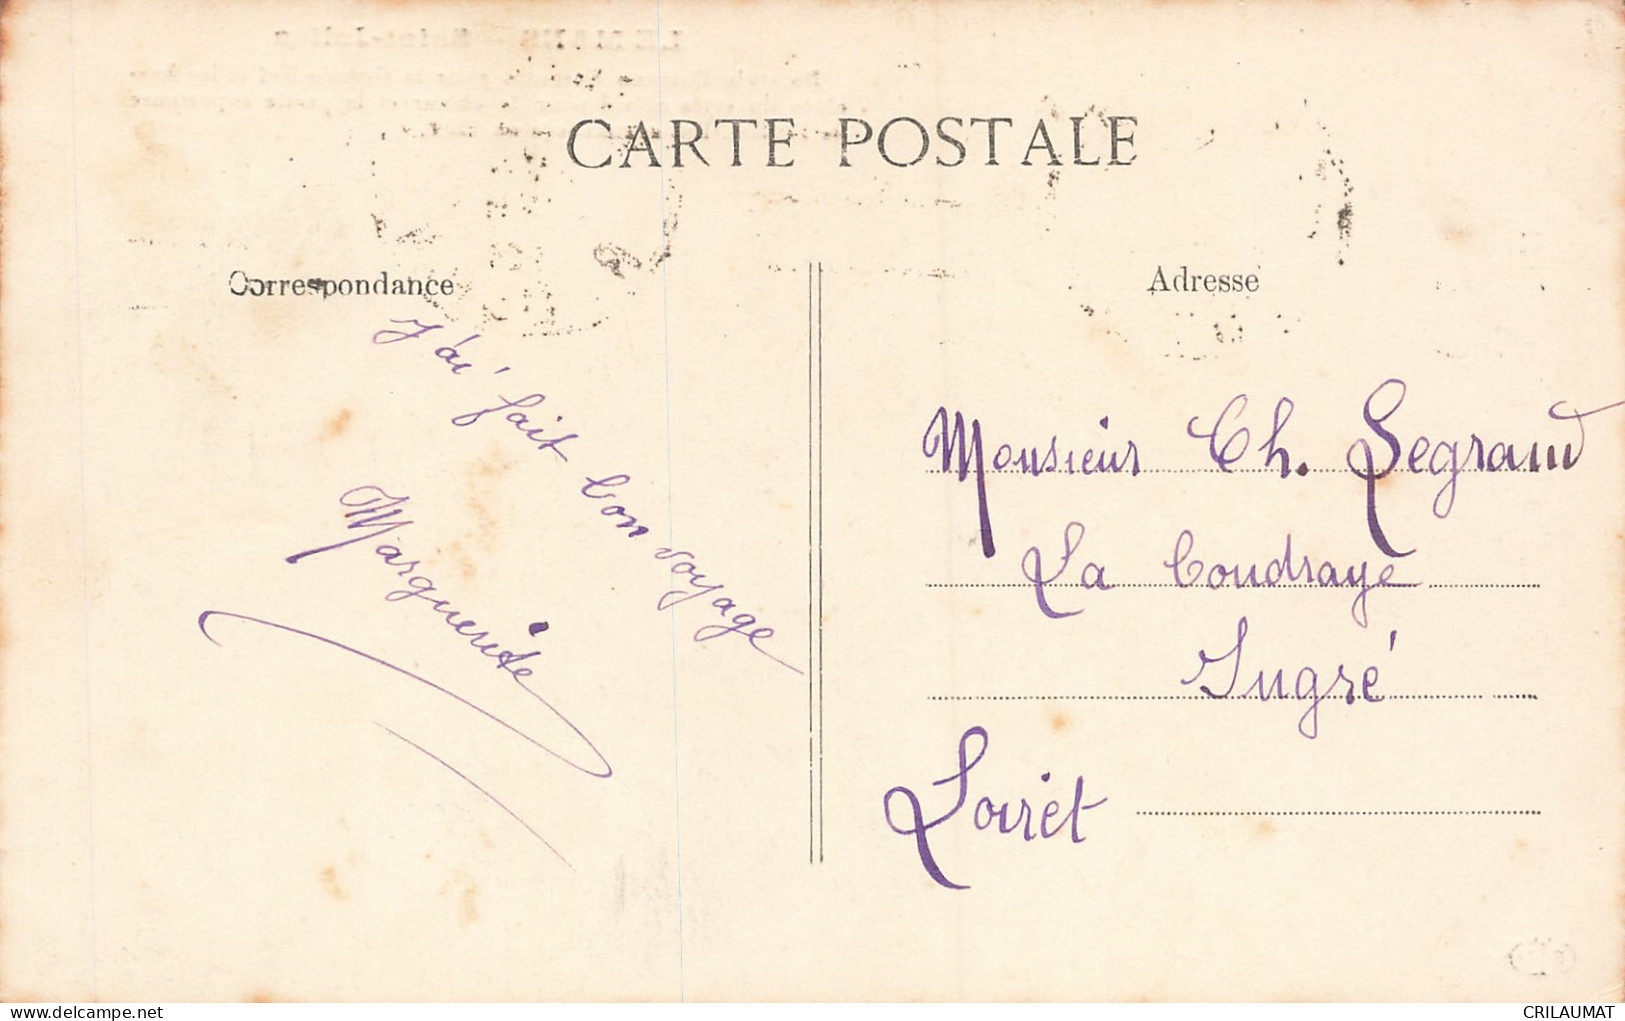 CARTE POSTALE
Correspondance
J'ai fait bon voyage
Marguerite
Adresse
Monsieur Ch. Legrand
La Coudraye
Ingré
Loiret
delcampe.net
CRILAUMAT